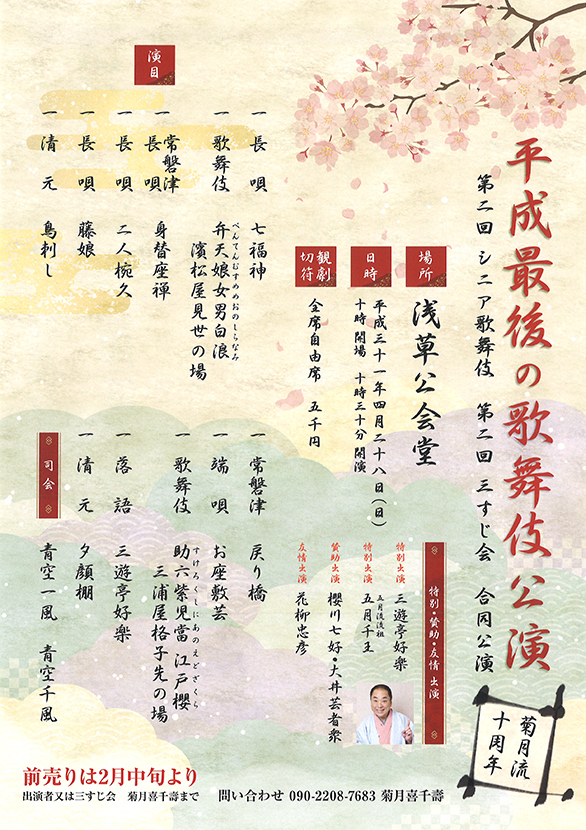 平成最後の歌舞伎公演
第二回 シニア歌舞伎 第二回 三すじ会 合同公演
菊月流
十周年
場所
浅草公会堂
日時
平成三十一年四月二十八日（日）
十時開場 十時三十分開演
観劇
切符
全席自由席 五千円
特別・賛助・友情 出演
特別出演 三遊亭好楽
五月流流祖
特別出演 五月千王
賛助出演 櫻川七好・大井芸者衆
友情出演 花柳忠彦
演目
一 長唄 七福神
べんてんむすめめおのしらなみ
一 歌舞伎 弁天娘女男白浪
濱松屋見世の場
一 常磐津
長唄 身替座禅
一 長唄 二人椀久
一 長唄 藤娘
一 清元 鳥刺し
一 常磐津 戻り橋
一 端唄 お座敷芸
すけろくしじみのえどざくら
一 歌舞伎 助六紫児當江戸櫻
三浦屋格子先の場
一 落語 三遊亭好楽
一 清元 夕顔棚
司会
青空一風 青空千風
前売りは2月中旬より
出演者又は三すじ会 菊月喜千壽まで
問い合わせ 090-2208-7683 菊月喜千壽